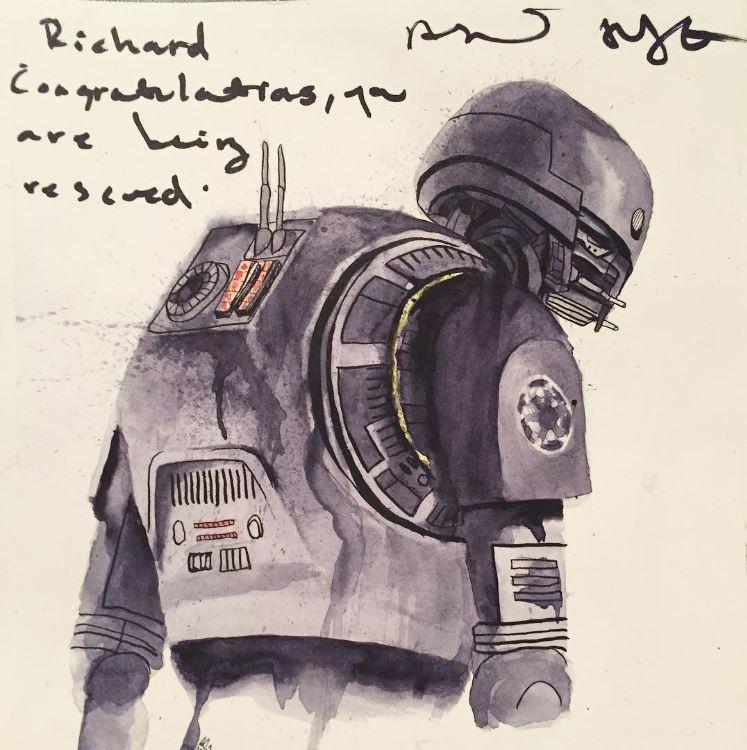 Richard
Congratulations, you
are being
rescued.